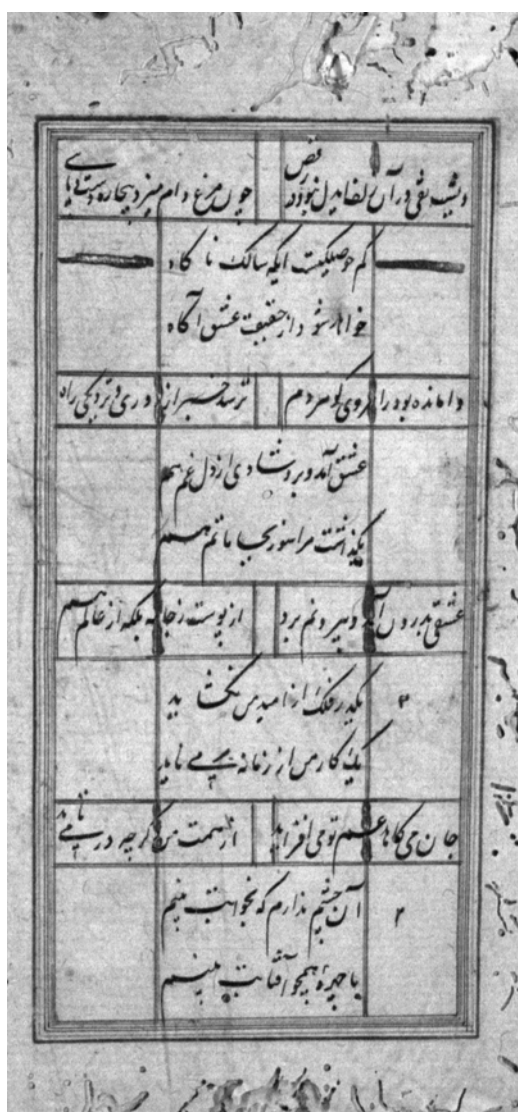 چون مرغ دام میزد بیچاره دست و پای
کم حوصلگیست اینکه سالک ناگاه
خواهد شود از حقیقت عشق آگاه
وامانده بود راهروی کو هر دم پرسد خبر از دوری و نزدیکی راه
عشق آمد و برد شادی از دل غم هم
بگذاشت مرا نه سور بجا ماتم هم
عشقی بدرون آمد و بیرونم برد از پوست نه بلکه از عالم هم
یکدر فلک از امید من نگشاید
یک کار من از زمانه می برناید
جان می کاهد غم تو می افزاید از من گرچه در می
۲ آن چشم ندارم که بخوابت بینم
یا چهره همچو آفتابت بینم